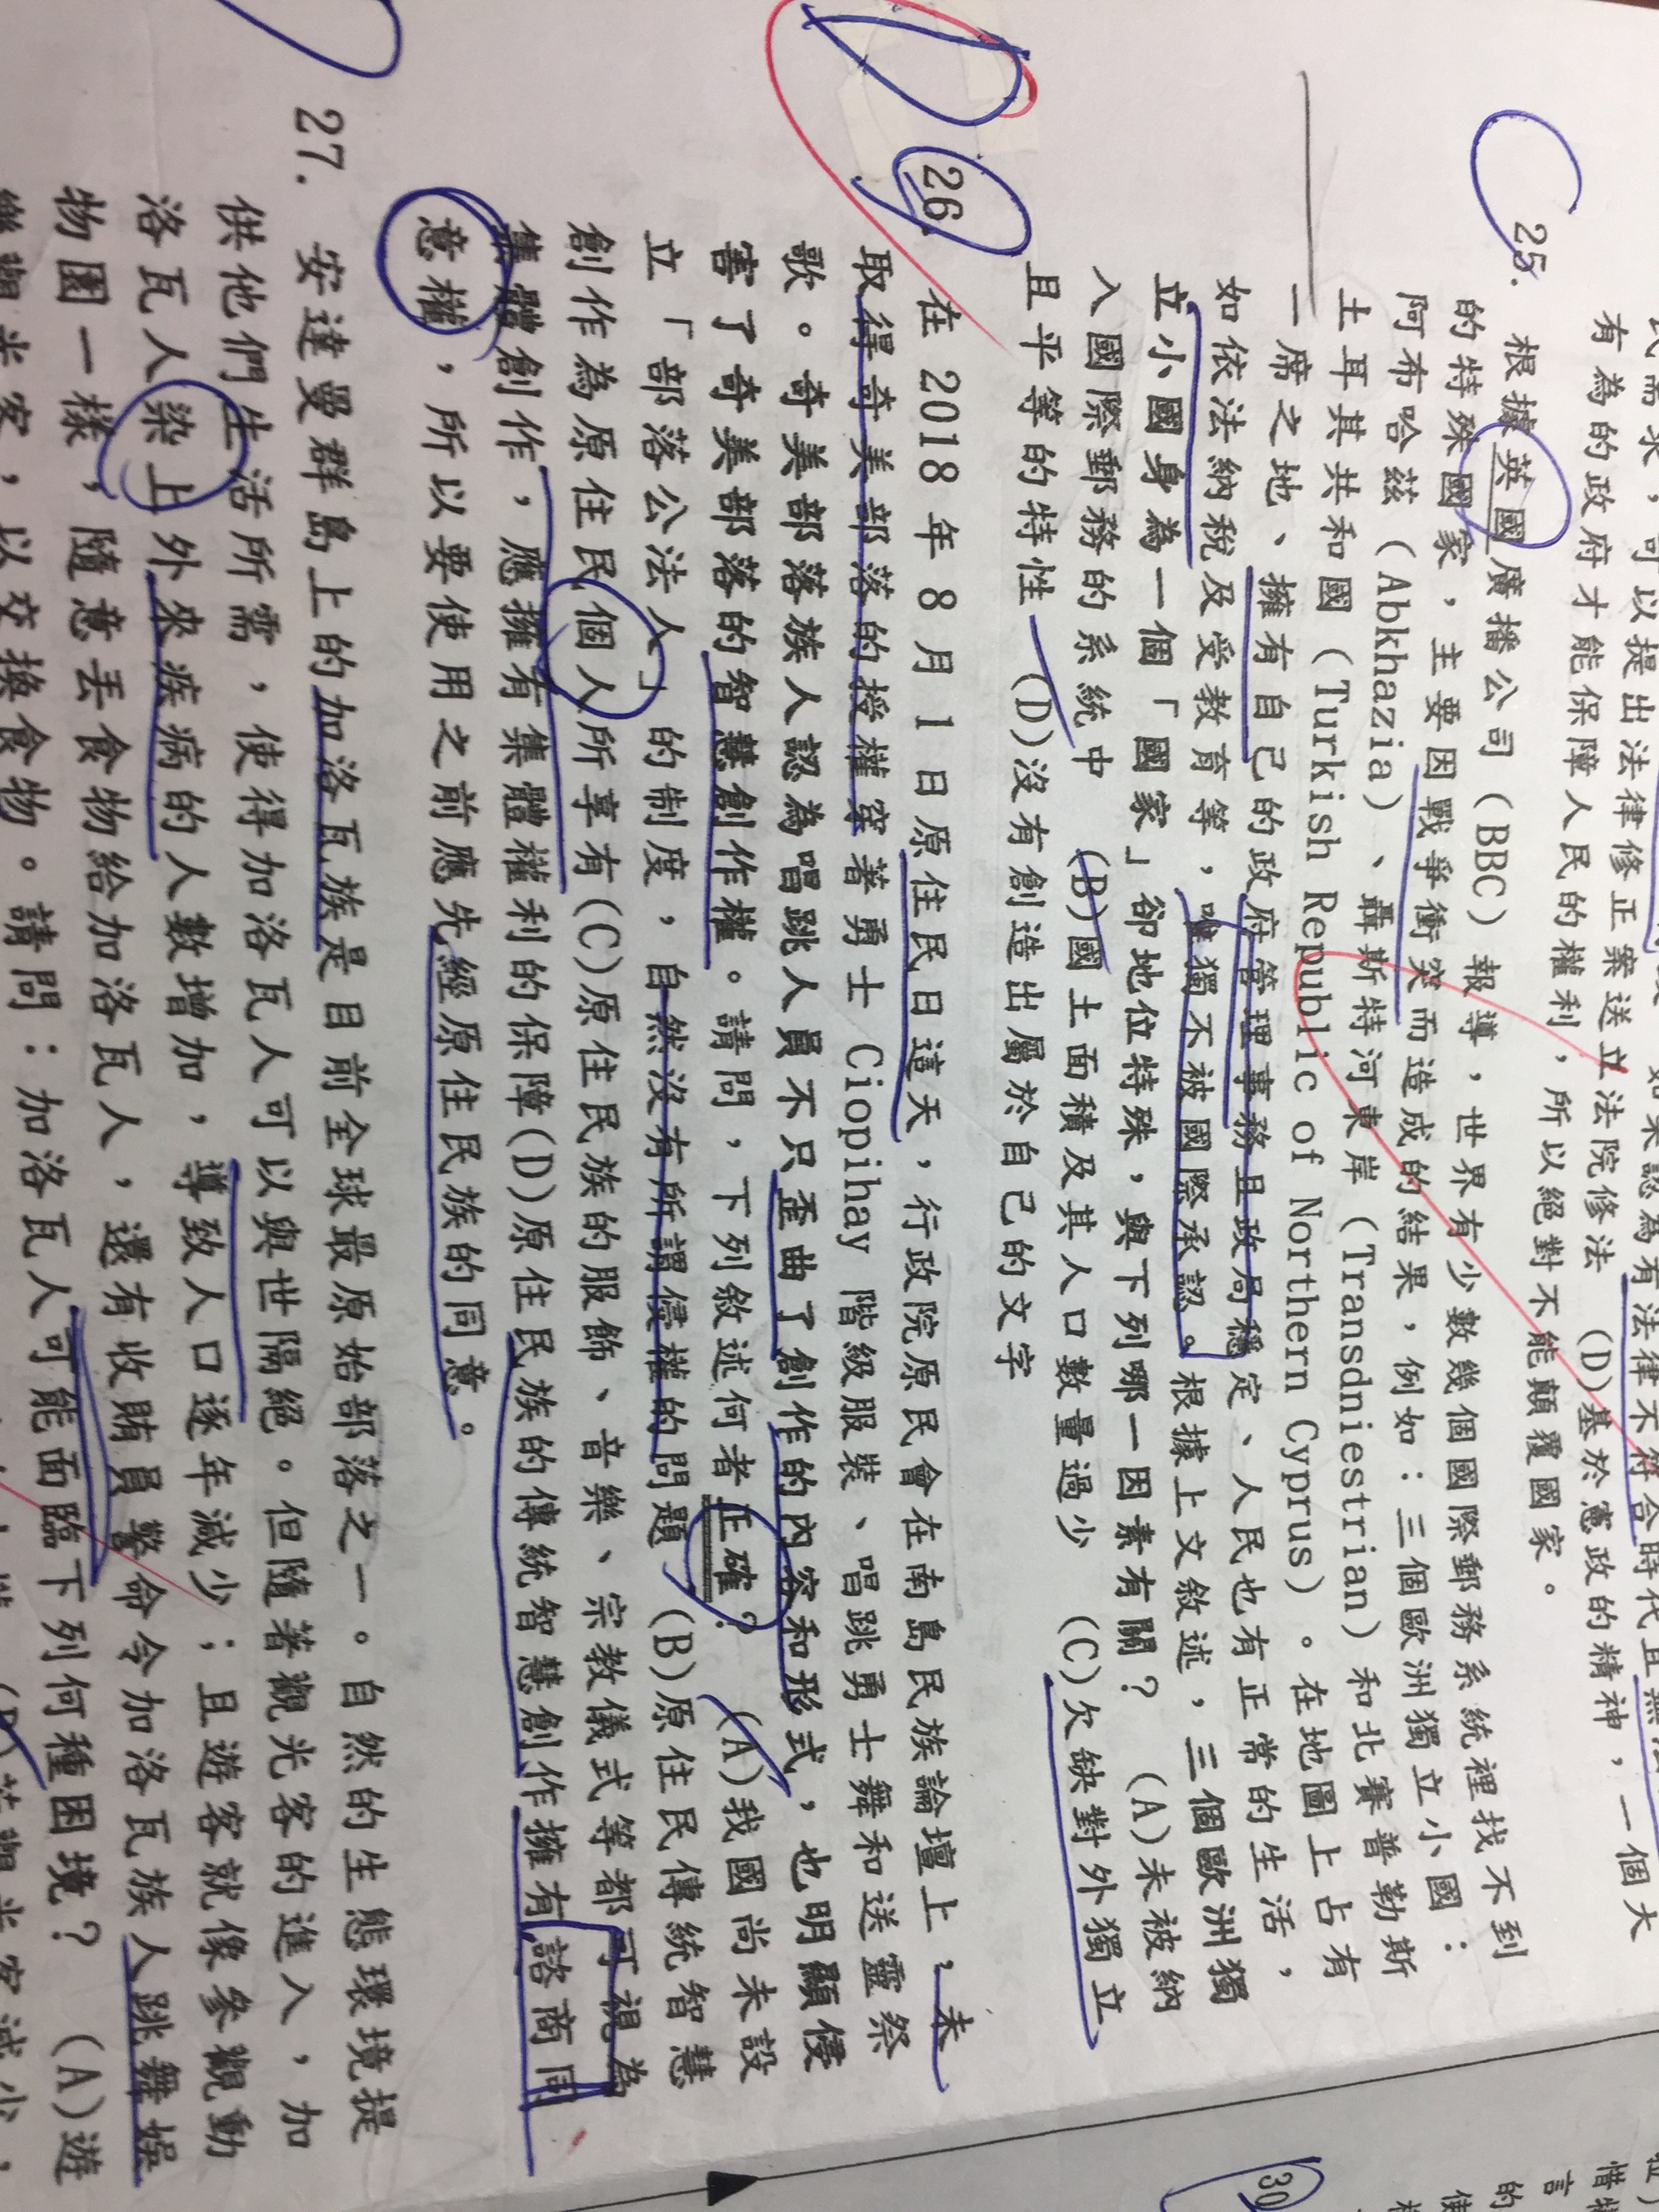 民需求，可以提出法律修正案送立法院修法 (D)基於憲政的精神，一個大
有為的政府才能保障人民的權利，所以絕對不能顛覆國家。
25. 根據英國廣播公司（BBC）報導，世界有少數幾個國際郵務系統裡找不到
的特殊國家，主要因戰爭衝突而造成的結果，例如：三個歐洲獨立小國：
阿布哈茲（Abkhazia）、聶斯特河東岸（Transdniestrian）和北賽普勒斯
土耳其共和國（Turkish Republic of Northern Cyprus）。在地圖上占有
一席之地、擁有自己的政府管理事務且政局穩定、人民也有正常的生活，
如依法納稅及受教育等，唯獨不被國際承認。根據上文敘述，三個歐洲獨
立小國身為一個「國家」卻地位特殊，與下列哪一因素有關？ (A)未被納
入國際郵務的系統中 (B)國土面積及其人口數量過少 (C)欠缺對外獨立
且平等的特性 (D)沒有創造出屬於自己的文字
26. 在 2018 年 8 月 1 日原住民日這天，行政院原民會在南島民族論壇上，未
取得奇美部落的授權穿著勇士 Ciopihay 階級服裝、唱跳勇士舞和送靈祭
歌。奇美部落族人認為唱跳人員不只歪曲了創作的內容和形式，也明顯侵
害了奇美部落的智慧創作權。請問，下列敘述何者正確？ (A)我國尚未設
立「部落公法人」的制度，自然沒有所謂侵權的問題 (B)原住民傳統智慧
創作為原住民個人所享有(C)原住民族的服飾、音樂、宗教儀式等都可視為
集體創作，應擁有集體權利的保障(D)原住民族的傳統智慧創作擁有諮商同
意權，所以要使用之前應先經原住民族的同意。
27. 安達曼群島上的加洛瓦族是目前全球最原始部落之一。自然的生態環境提
供他們生活所需，使得加洛瓦人可以與世隔絕。但隨著觀光客的進入，加
洛瓦人染上外來疾病的人數增加，導致人口逐年減少；且遊客就像參觀動
物園一樣，隨意丟食物給加洛瓦人，還有收賄員警命令加洛瓦族人跳舞娛
樂觀光客，以交換食物。請問：加洛瓦人可能面臨下列何種困境？ (A)遊
30